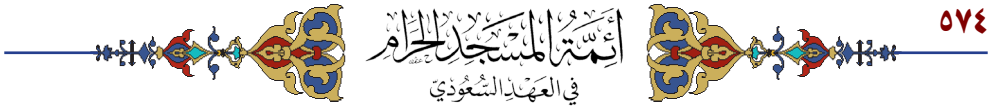 ٥٧٤
أَئِمَّةُ المَسْجِدِ الحَرَامِ
فِي العَهْدِ السُّعُودِيِّ